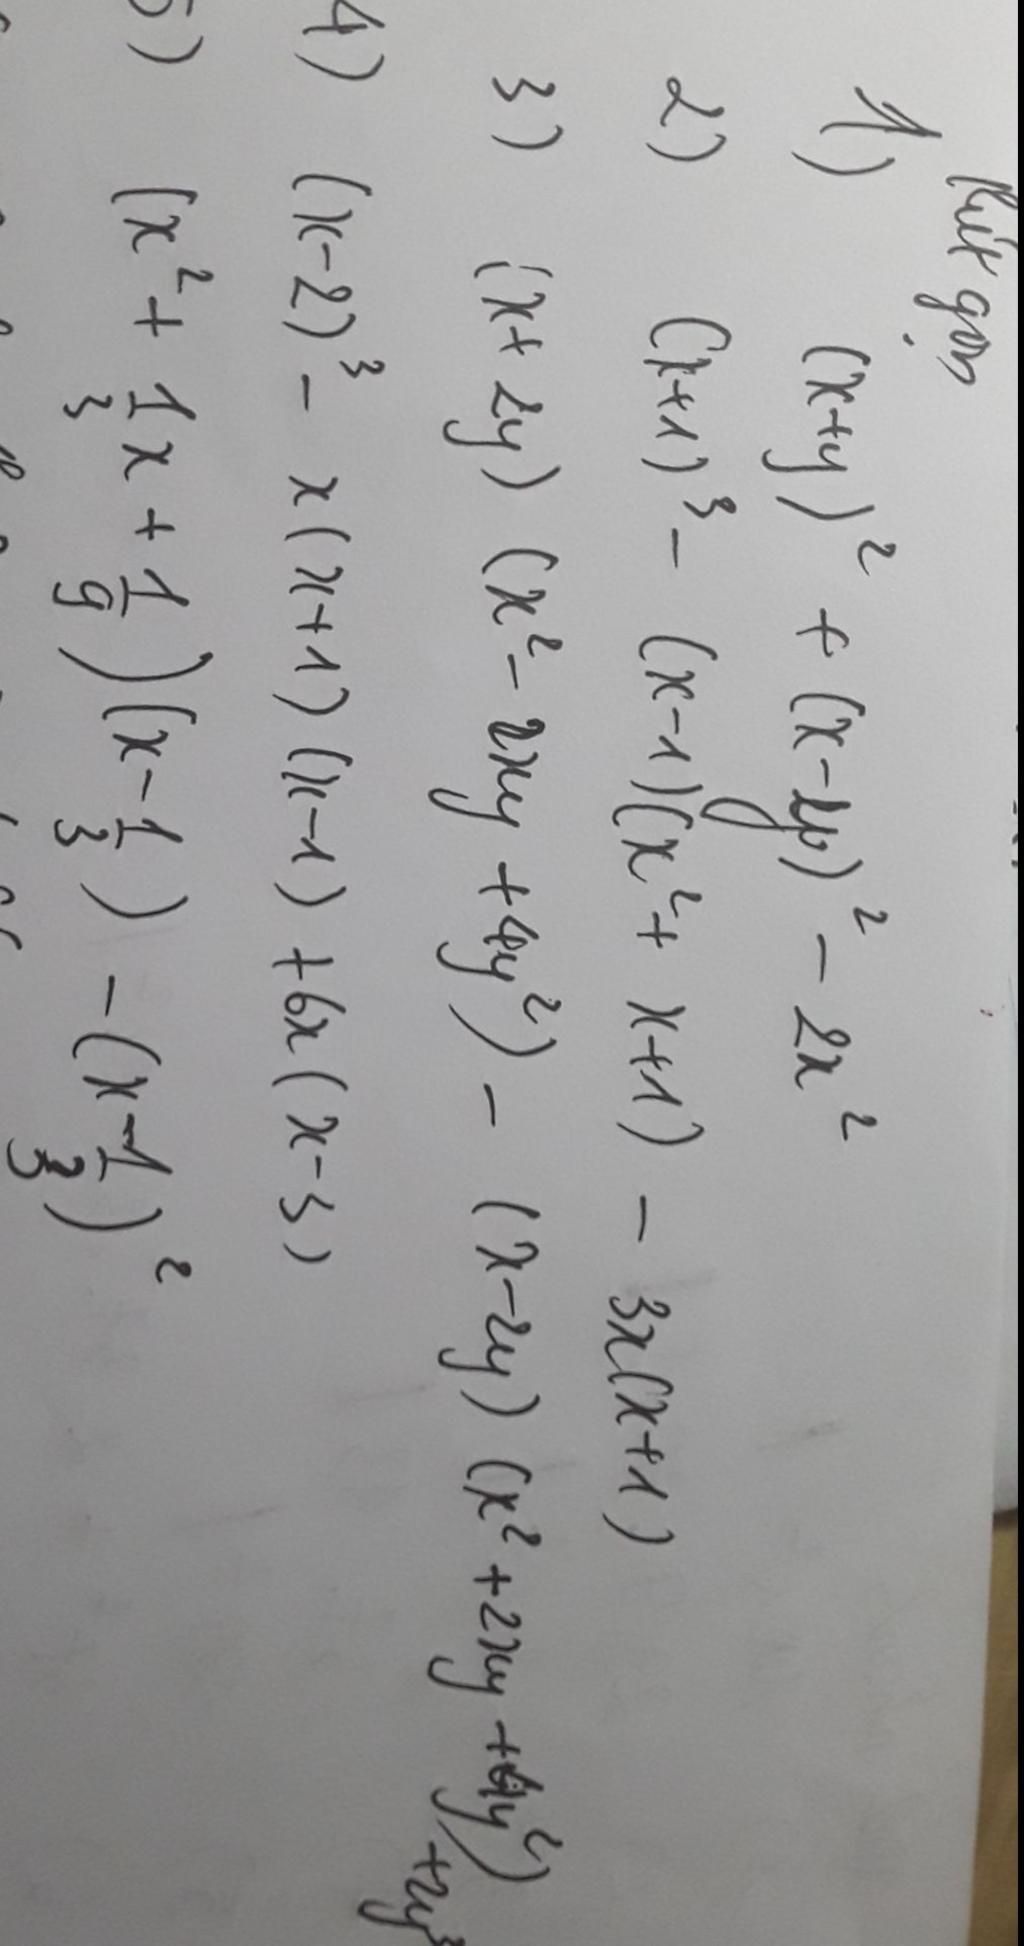 Rút gọn
1) (x+y)² + (x-y)² - 2x²
2) (x+1)³ - (x-1)(x²+ x+1) - 3x(x+1)
3) (x+ 2y) (x²- 2xy +4y²) - (x-2y) (x²+2xy +4y²) +2y³
4) (x-2)³ - x(x+1)(x-1) +6x(x-3)
5) (x²+ 1/3 x + 1/9)(x- 1/3) -(x- 1/3)²